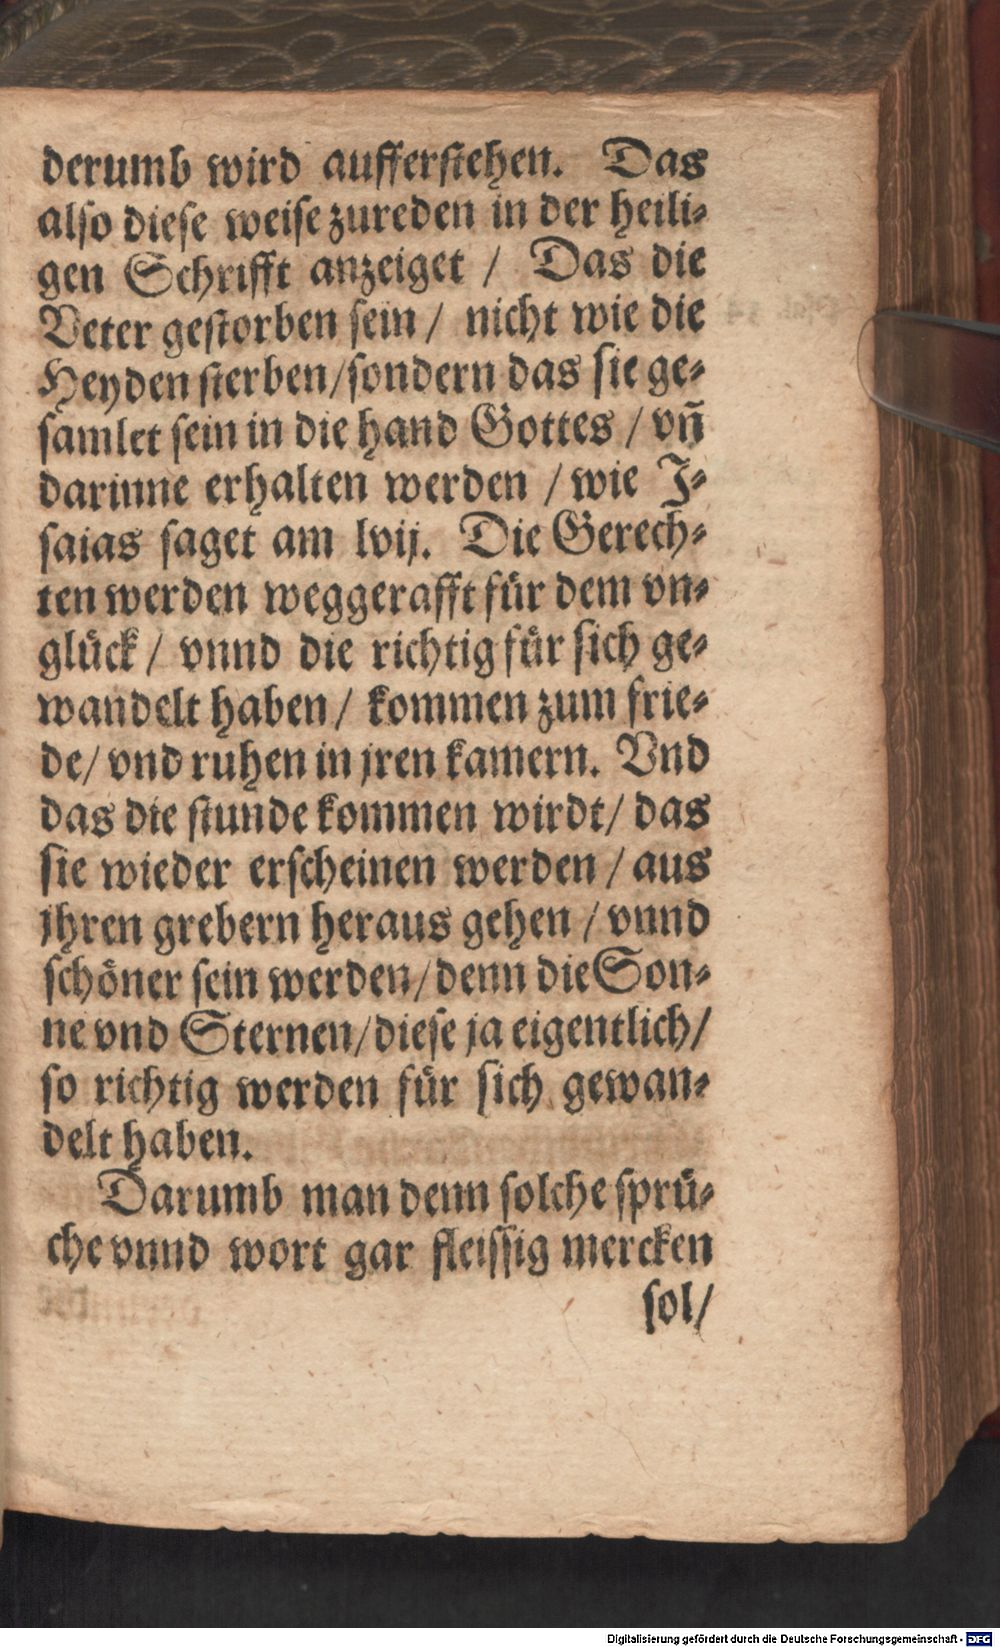 derumb wird aufferstehen. Das
also diese weise zureden in der heili-
gen Schrifft anzeiget / Das die
Veter gestorben sein / nicht wie die
Heyden sterben/sondern das sie ge-
samlet sein in die hand Gottes / vñ
darinne erhalten werden / wie J-
saias saget am lvij. Die Gerech-
ten werden weggerafft für dem vn-
glück / vnnd die richtig für sich ge-
wandelt haben / kommen zum frie-
de/ vnd ruhen in jren kamern. Vnd
das die stunde kommen wirdt/ das
sie wieder erscheinen werden / aus
jhren grebern heraus gehen / vnnd
schöner sein werden/denn die Son-
ne vnd Sternen/diese ja eigentlich/
so richtig werden für sich gewan-
delt haben.
Darumb man denn solche sprü-
che vnnd wort gar fleissig mercken
sol/
Digitalisierung gefördert durch die Deutsche Forschungsgemeinschaft - DFG